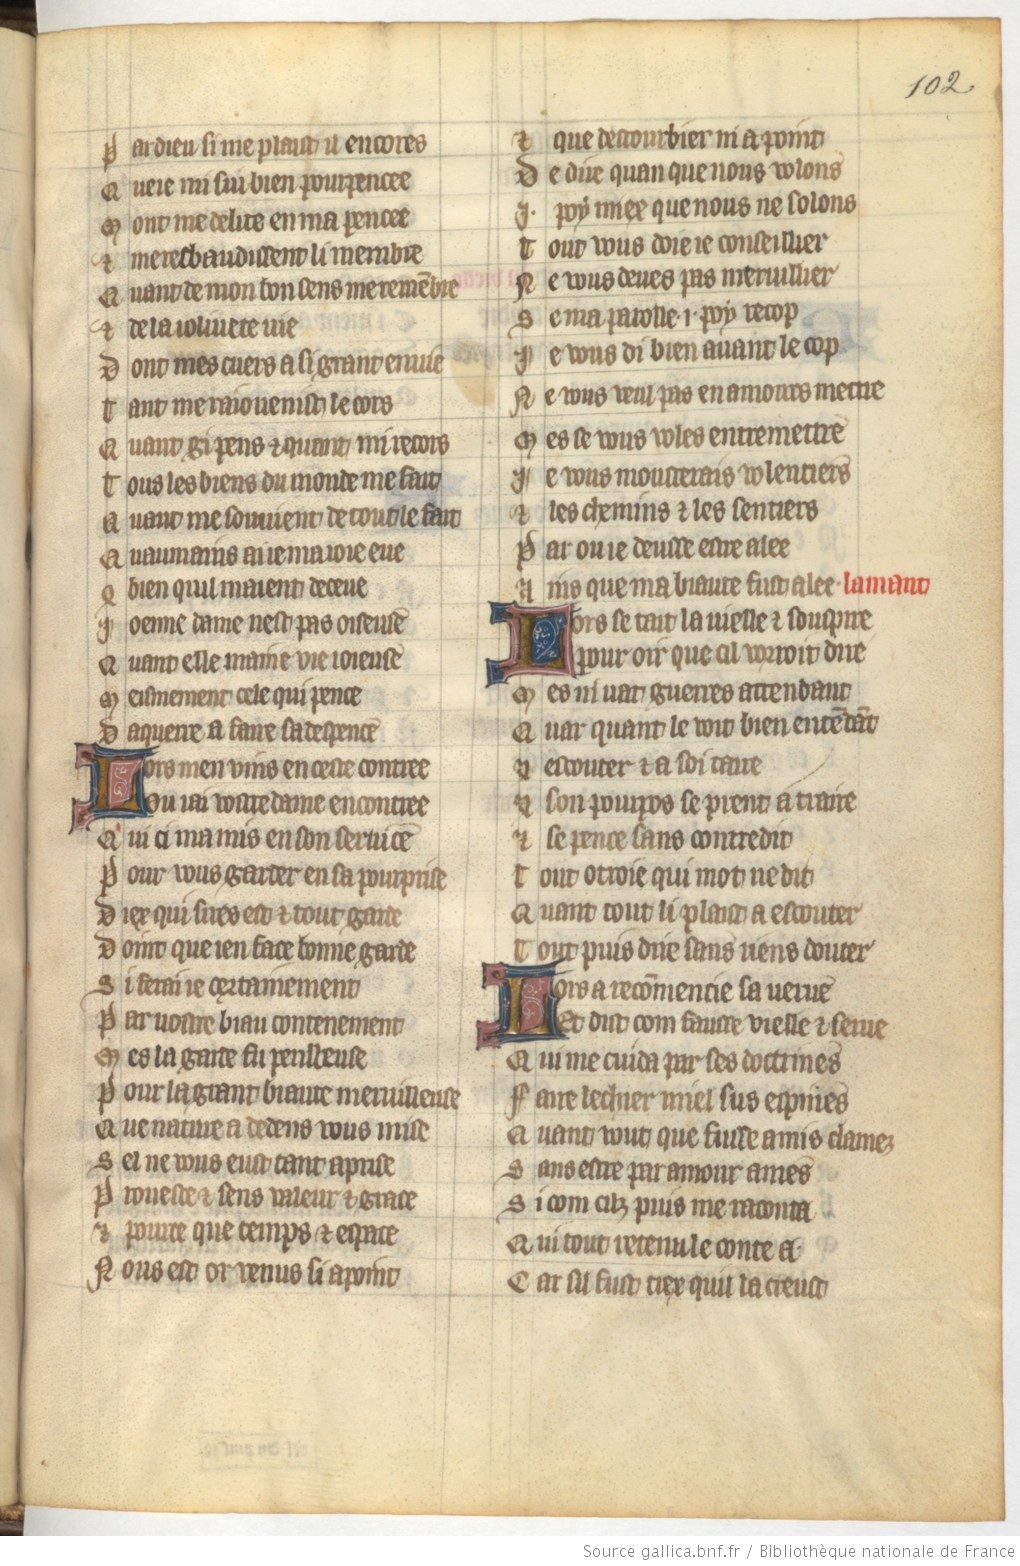 102
P ardieu si me plaist il encores
Q uere mi sui bien pourpencee
M out me delite en ma pencee
⁊ me resbaudissent li membre
Q uant de mon bon sens me remēbre
⁊ de la iolivete vie
D ont mes cuers a si grant envie
T ant me raiovenist le cors
Q uant gi pens ⁊ quant mi recors
T ous les biens du monde me fait
Q uant me souvient de tout le fait
Q uaumains ai ie ma ioie eue
Q bien quil maient deceue
J oenne dame nest pas oiseuse
Q uant elle maine vie ioieuse
M eismement cele qui pence
D aquerre a faire sa despence
Lors men vins en ceste contree
Ou iai vostre dame encontree
Q ui ci ma mis en son service
P our vous garder en sa pourprise
D iex qui sires est ⁊ tout garde
D oint que ien face bonne garde
S i ferai ie certainement
P ar vostre biau contenement
M es la garde fu perilleuse
P our la grant biaute merveilleuse
Q ue nature a dedens vous mise
S el ne vous eust tant aprise
P rouesce ⁊ sens valeur ⁊ grace
⁊ pource que temps ⁊ espace
N ous est or venus si apoint
⁊ que destourbier ni a point
D e dire quan que nous volons
J. poy miex que nous ne solons
T out vous doie ie conseillier
N e vous deves pas merveillier
S e ma parolle .i. poy recop
J e vous di bien avant le cop
N e vous veul pas en amours mettre
M es se vous voles entremettre
J e vous mousterais volentiers
⁊ les chemins ⁊ les sentiers
P ar ou ie deusse estre alee
A ins que ma biaute fust alee. lamant
Lors se taut la vielle ⁊ souspire
pour oir que cil vorroit dire
M es ni vat guerres attendant
Q uar quant le voit bien entēdāt
A escouter ⁊ a soi taire
A son pourpos se prent a traire
⁊ se pence sans contredit
T out otroie qui mot ne dit
Q uant tout li plaist a escouter
T out puis dire sans riens douter
Lors a recōmencie sa verve
Et dist com fausse vielle ⁊ serve
Q ui me cuida par ses doctrines
F aire lechier miel sus espines
Q uant vout que fusse amis clamez
S ans estre par amour ames
S i com cilz puis me raconta
Q ui tout retenu le conte a
C ar sil fust tiex quil la creust